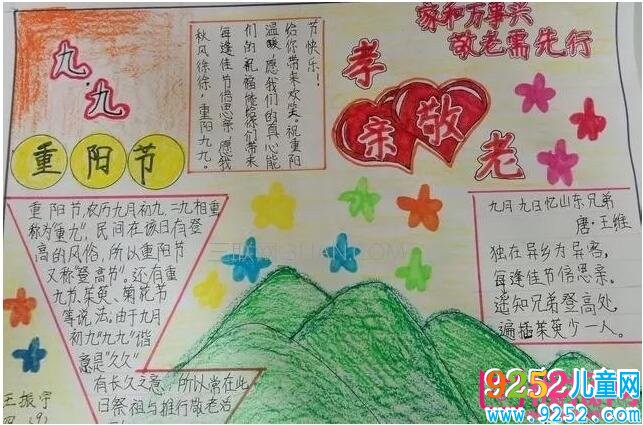 九.九
重阳节
节快乐！
给你带来欢笑。祝重阳
温暖，愿我们的真心能
们的祝福能给你们带来
每逢佳节倍思亲，愿我
秋风徐徐，重阳九九。
家和万事兴
敬老需先行
孝
亲
敬
老
重阳节，农历九月初九，二九相重
称为"重九"。民间在该日有登
高的风俗，所以重阳节
又称"登高节"。还有重
九节、茱萸、菊花节
等说法，由于九月
初九"九九"谐
意是"久久"
有长久之意，所以常在此
日祭祖与推行敬老活
九月九日忆山东兄弟
唐·王维
独在异乡为异客，
每逢佳节倍思亲。
遥知兄弟登高处，
遍插茱萸少一人。
王振宇
9252儿童网
www.9252.com